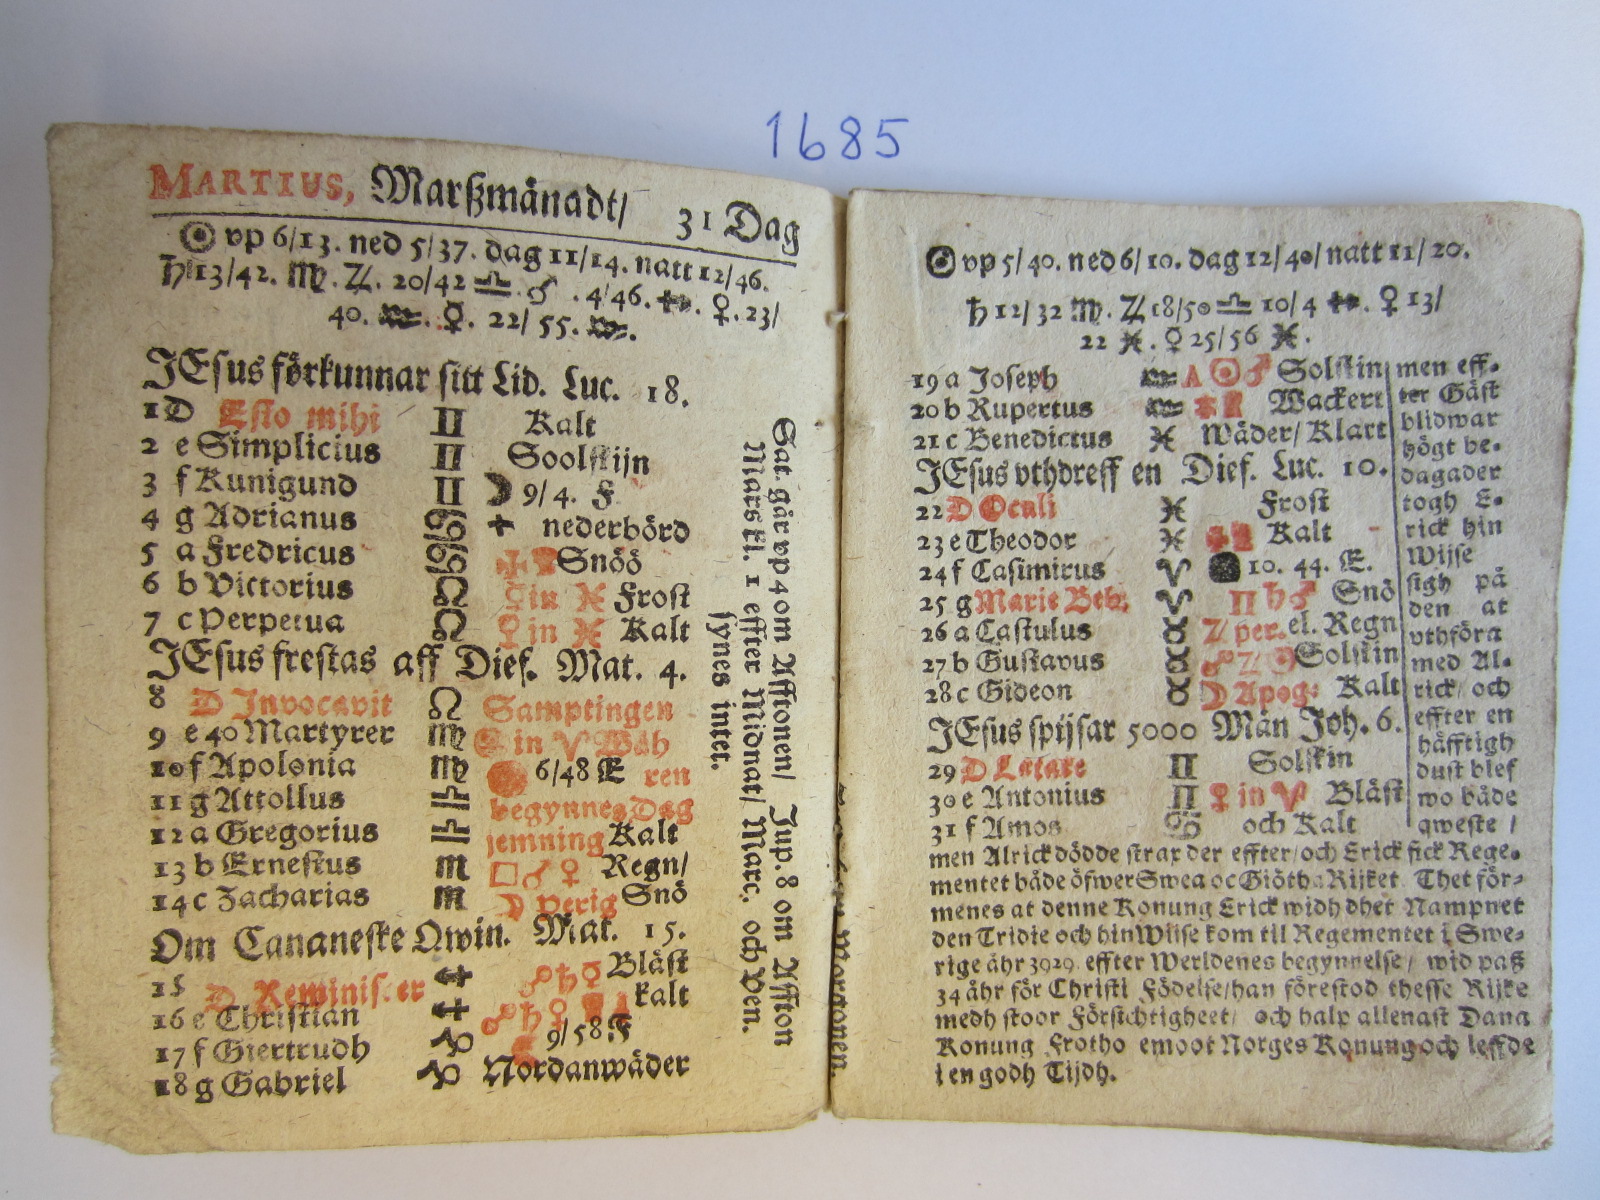 1685
MARTIUS, Marßmånadt/ 31 Dag
☉ vp 6/13. ned 5/37. dag 11/14. natt 12/46.
♄ 13/42. ♍. ♃. 20/42 ♎. ♂ .4/46. ♐. ♀. 23/
40. ♒. ☿. 22/55. ♒.
JEsus förkunnar sitt Lid. Luc. 18.
1 D Esto mihi ♊ Kalt
2 e Simplicius ♊ Soolskijn
3 f Kunigund ♊ ☽ 9/4. F
4 g Adrianus ♋ + nederbörd
5 a Fredricus ♋ Snöö
6 b Victorius ♌ ♀ in ♓ Frost
7 c Perpetua ♌ ☿ in ♓ Kalt
JEsus frestas aff Dief. Mat. 4.
8 D Invocavit ♌ Samptingen
9 e 40 Martyrer ♍ ☉ in ♈ Wåh
10 f Apolonia ♍ 6/48 E ren
11 g Attollus ♎ begynnes Dag
12 a Gregorius ♎ jemning Kalt
13 b Ernestus ♏ □ ♂ ♀ Regn/
14 c Zacharias ♏ D perig Snö
Om Cananeske Qwin. Mat. 15.
15 D Reminiscer ♐ ☍ ♄ ☿ Blåst
16 e Christian ♐ ☍ ♄ ♀ kalt
17 f Giertrudh ♑ 9/58. F
18 g Gabriel ♑ Nordanwåder
Sat. går vp 4 om Afftonen/ Jup. 8 om Affton
Mars kl. 1 effter Midnat/ Marc. och Ven.
synes intet.
Morgonen.
☉ vp 5/40. ned 6/10. dag 12/40/ natt 11/20.
♄ 12/32 ♍. ♃ 18/50 ♎ 10/4 ♐. ♀ 13/
22 ♓. ☿ 25/56 ♓.
19 a Joseph ♒ A ☉ ♂ Solskin
20 b Rupertus ♒ Wackert
21 c Benedictus ♓ Wåder/ Klart
JEsus vthdreff en Dief. Luc. 10.
22 D Oculi ♓ Frost
23 e Theodor ♓ Kalt
24 f Casimirus ♈ 10. 44. E.
25 g Marie Beb. ♈ ♊ ♄ ♂ Snö
26 a Castulus ♉ ♃ per. el. Regn
27 b Gustavus ♉ ☍ ♃ ☉ Solskin
28 c Gideon ♉ D Apog: Kalt
JEsus spijsar 5000 Mån Joh. 6.
29 D Lætare ♊ Solskin
30 e Antonius ♊ ♀ in ♈ Blåst
31 f Amos ♋ och Kalt
men eff-
ter Gåst
blidwar
högt be-
dagader
togh E-
rick hin
Wijse
sigh på
den at
vthföra
med Al-
rick/ och
effter en
håfftigh
dust blef
wo både
qweste /
men Alrick dödde strax der effter/ och Erick fick Rege-
mentet både öfwer Swea oc Giötha Rijket. Thet för-
menes at denne Konung Erick widh dhet Nampnet
den Tridie och hin Wijse kom til Regementet i Swe-
rige åhr 3929. effter Werldenes begynnelse/ wid paß
34 åhr för Christi Födelse/ han förestod thesse Rijke
medh stoor Försichtigheet/ och halp allenast Dana
Konung Frotho emoot Norges Konung och leffde
i en godh Tijdh.